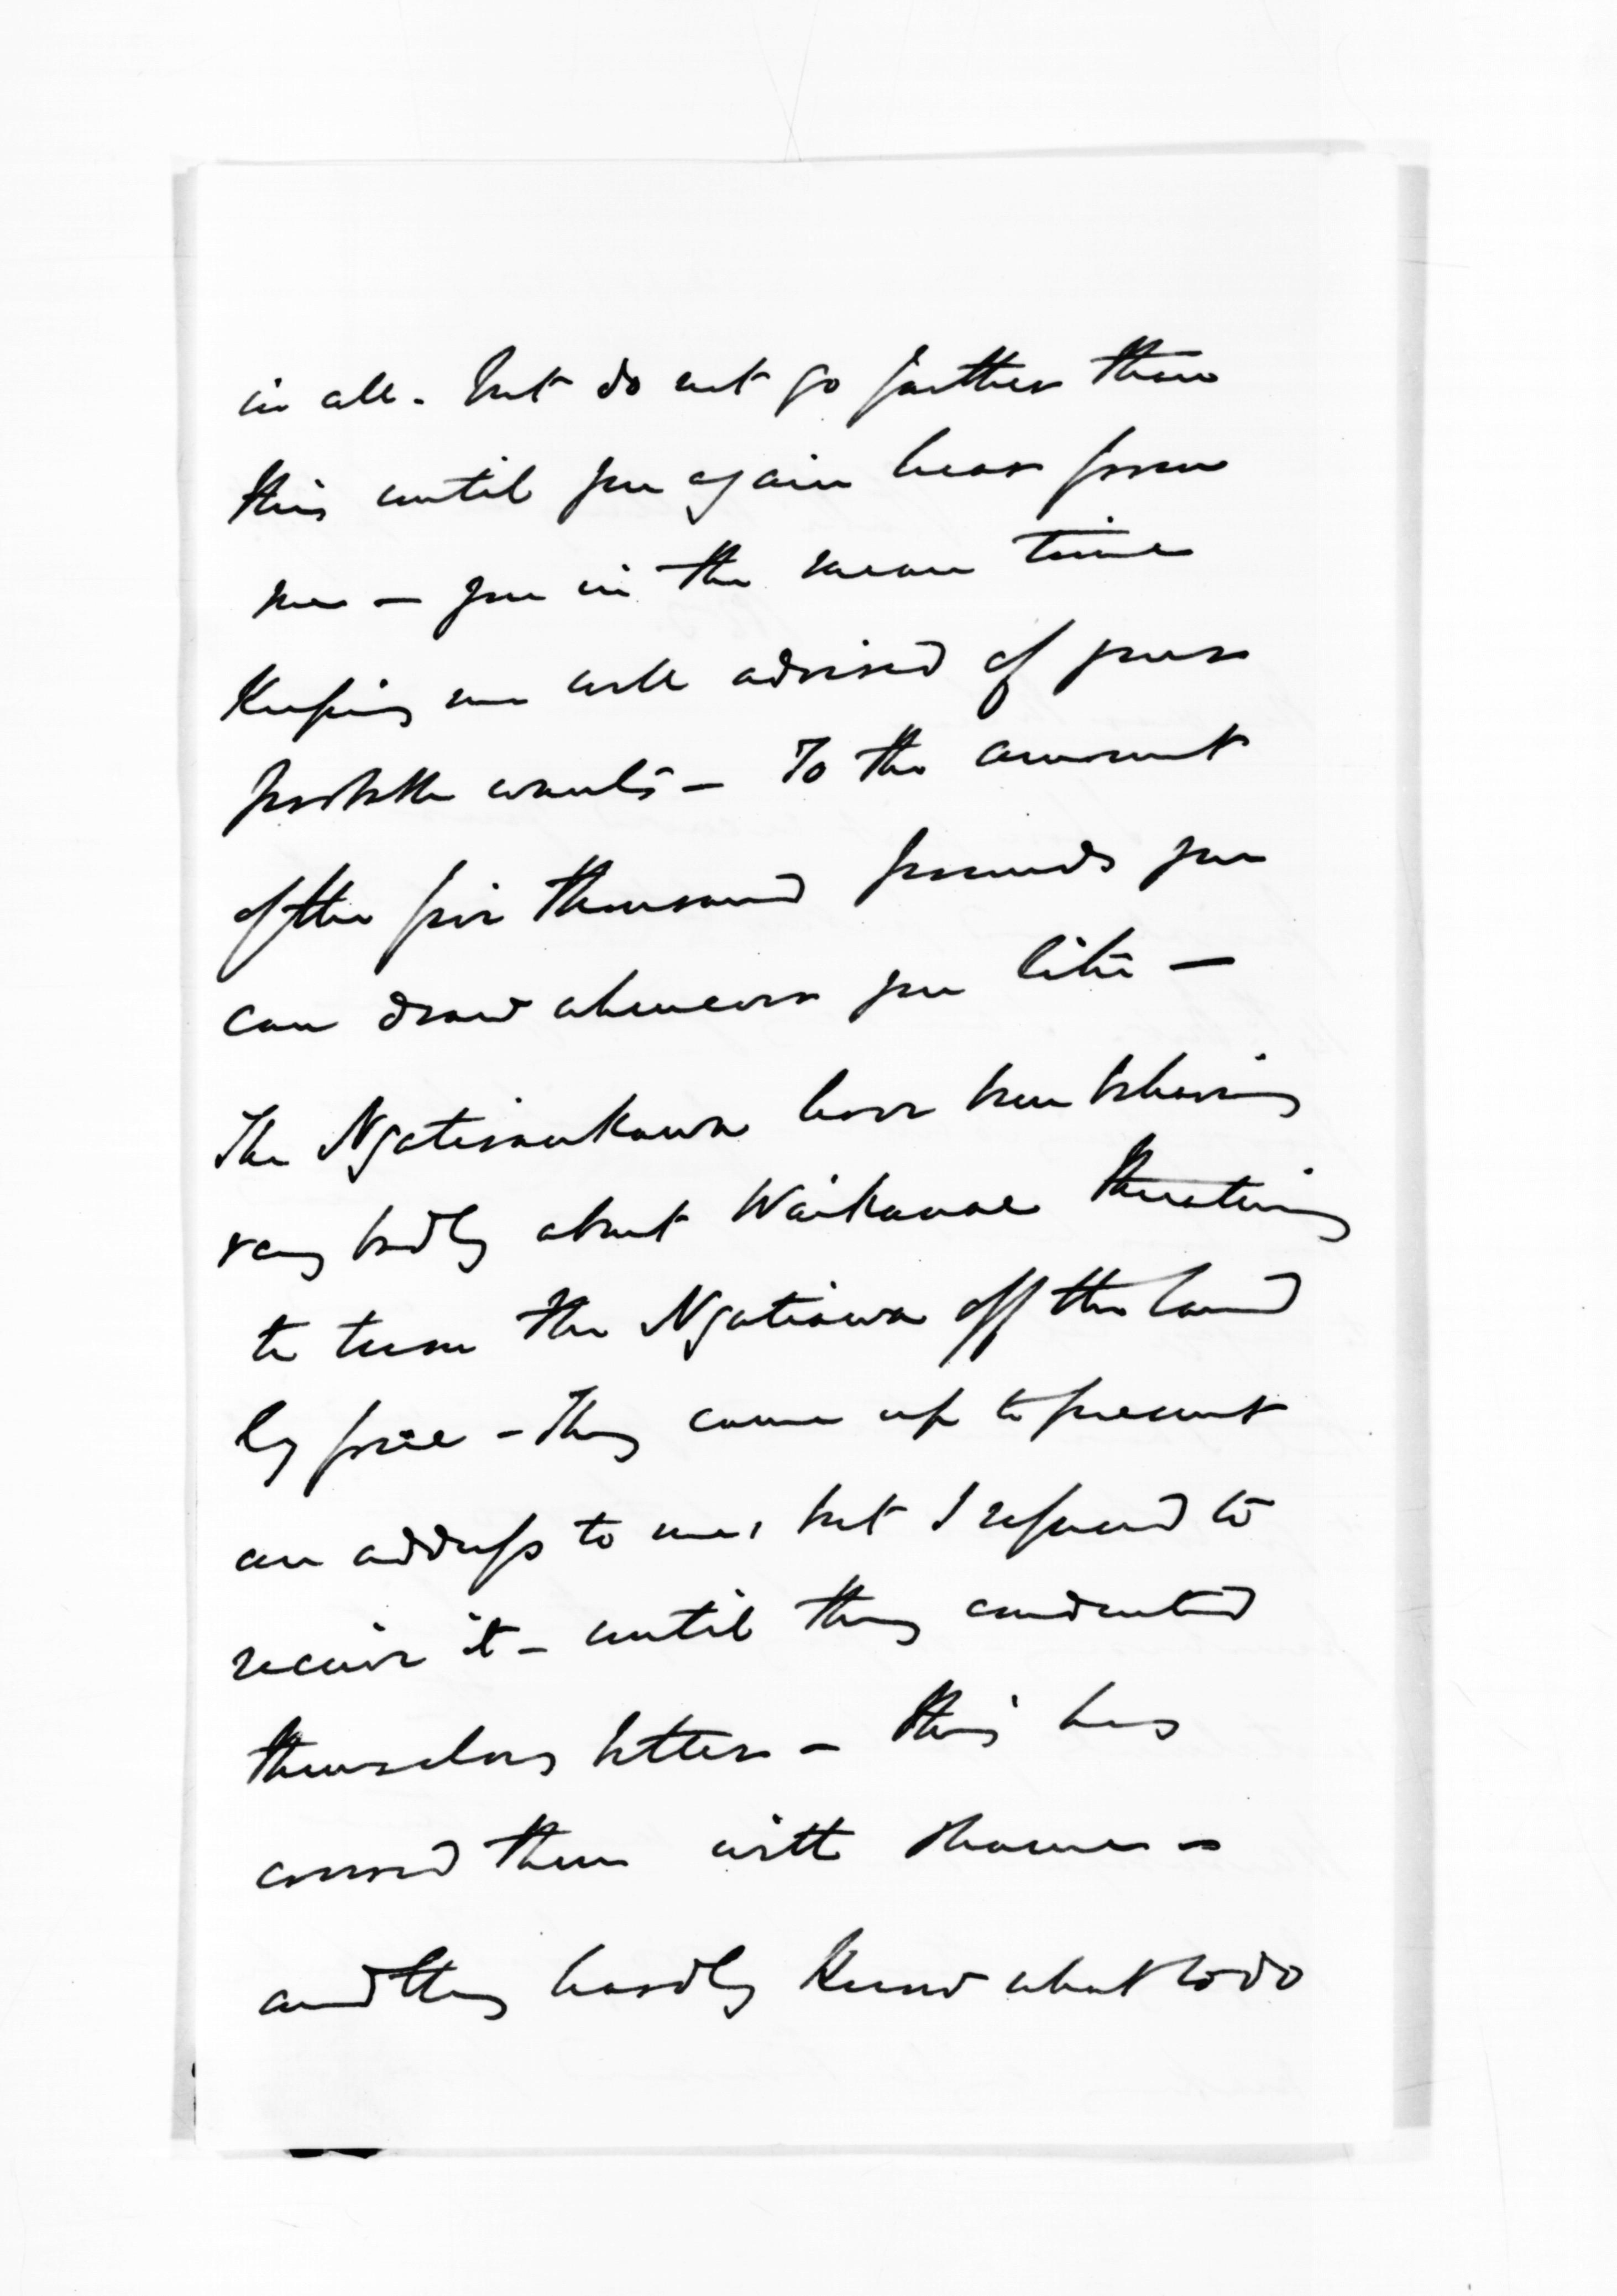 in all - but do not go further than
this until you again hear from
me - you in the mean time
Keeping me well advised of your
probable wants - To the amount
of the five thousand pounds you
can draw whenever you like -
The Ngatiraukawa have been behaving
very badly about Waikanae threatening
to turn the Ngatiawa off the land
by force - They came up to present
an address to me, but I refused to
receive it - until they conducted
themselves better - this has
covered them with shame -
and they hardly know what to do